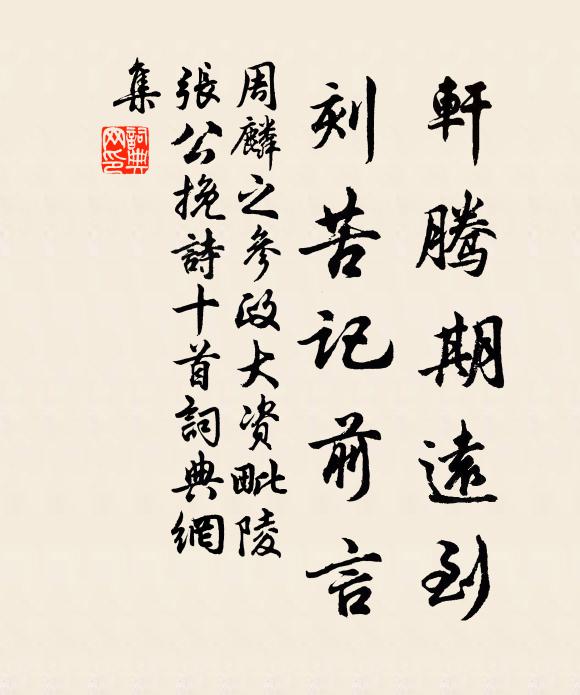 軒騰期遠到
刻苦記前言
周麟之參政大資毗陵
張公挽詩十首詞典網
集
詞典網印